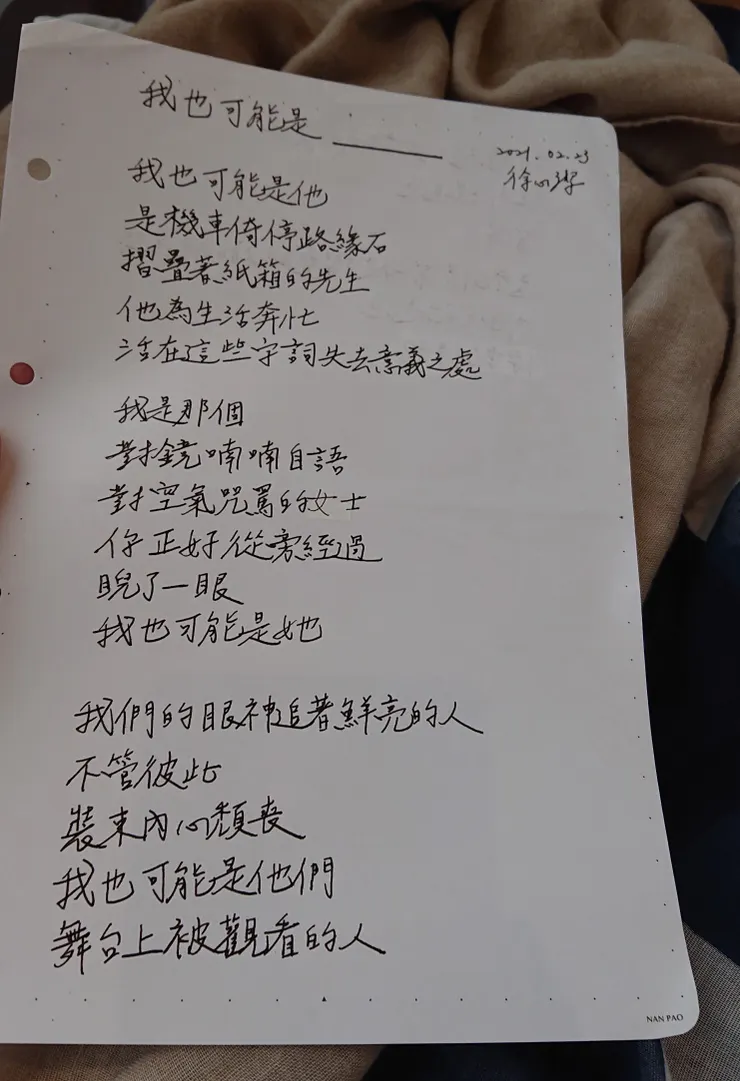 我也可能是______
2021.02.23
徐心潔
我也可能是他
是機車倚停路緣石
摺疊著紙箱的先生
他為生活奔忙
活在這些字詞失去意義之處
我是那個
對鏡喃喃自語
對空氣咒罵的女士
你正好從旁經過
睨了一眼
我也可能是她
我們的眼神追著鮮亮的人
不管彼此
裝束內心頹喪
我也可能是他們
舞台上被觀看的人
NAN PAO